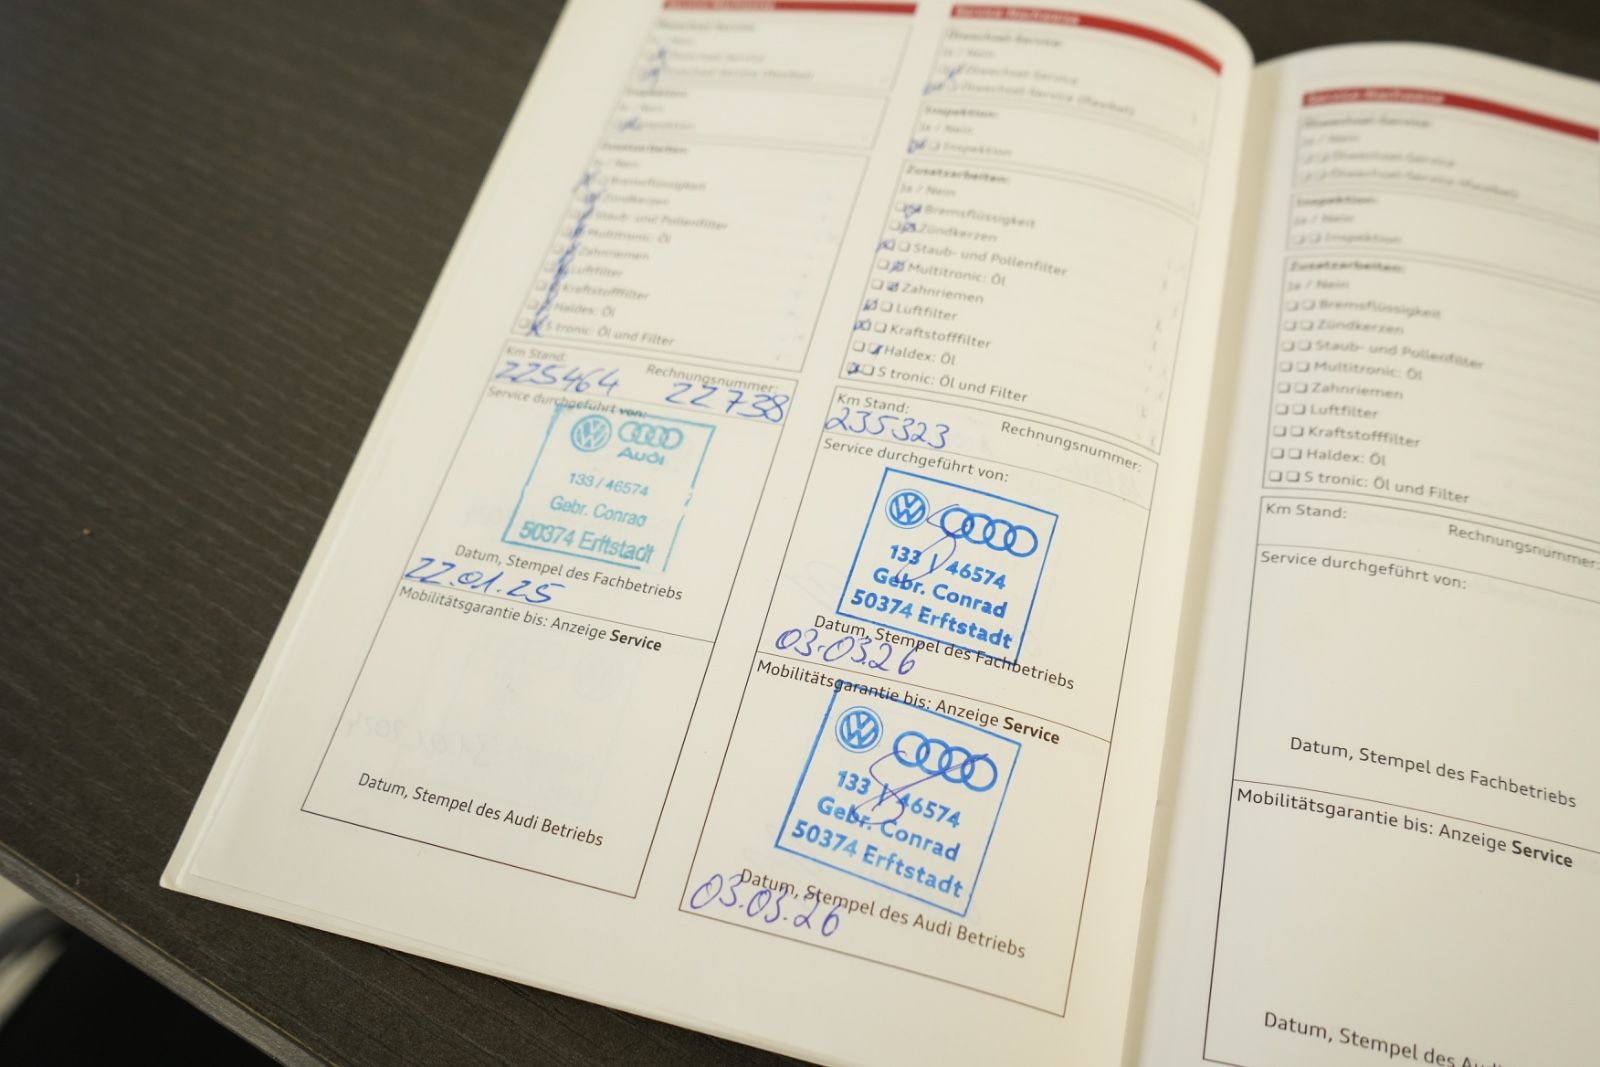 Service-Nachweise
Ölwechsel-Service:
Ja / Nein
Ölwechsel-Service
Ölwechsel-Service (flexibel)
Inspektion:
Ja / Nein
Inspektion
Zusatzarbeiten:
Ja / Nein
Bremsflüssigkeit
Zündkerzen
Staub- und Pollenfilter
Multitronic: Öl
Zahnriemen
Luftfilter
Kraftstofffilter
Haldex: Öl
S tronic: Öl und Filter
Km Stand:
Rechnungsnummer:
225464
22738
Service durchgeführt von:
Audi
133 / 46574
Gebr. Conrad
50374 Erftstadt
Datum, Stempel des Fachbetriebs
22.01.25
Mobilitätsgarantie bis: Anzeige Service
Datum, Stempel des Audi Betriebs
Service-Nachweise
Ölwechsel-Service:
Ja / Nein
Ölwechsel-Service
Ölwechsel-Service (flexibel)
Inspektion:
Ja / Nein
Inspektion
Zusatzarbeiten:
Ja / Nein
Bremsflüssigkeit
Zündkerzen
Staub- und Pollenfilter
Multitronic: Öl
Zahnriemen
Luftfilter
Kraftstofffilter
Haldex: Öl
S tronic: Öl und Filter
Km Stand:
Rechnungsnummer:
235323
Service durchgeführt von:
133 / 46574
Gebr. Conrad
50374 Erftstadt
Datum, Stempel des Fachbetriebs
03.03.26
Mobilitätsgarantie bis: Anzeige Service
133 / 46574
Gebr. Conrad
50374 Erftstadt
Datum, Stempel des Audi Betriebs
03.03.26
Service-Nachweise
Ölwechsel-Service:
Ja / Nein
Ölwechsel-Service
Ölwechsel-Service (flexibel)
Inspektion:
Ja / Nein
Inspektion
Zusatzarbeiten:
Ja / Nein
Bremsflüssigkeit
Zündkerzen
Staub- und Pollenfilter
Multitronic: Öl
Zahnriemen
Luftfilter
Kraftstofffilter
Haldex: Öl
S tronic: Öl und Filter
Km Stand:
Rechnungsnummer:
Service durchgeführt von:
Datum, Stempel des Fachbetriebs
Mobilitätsgarantie bis: Anzeige Service
Datum, Stempel des Audi